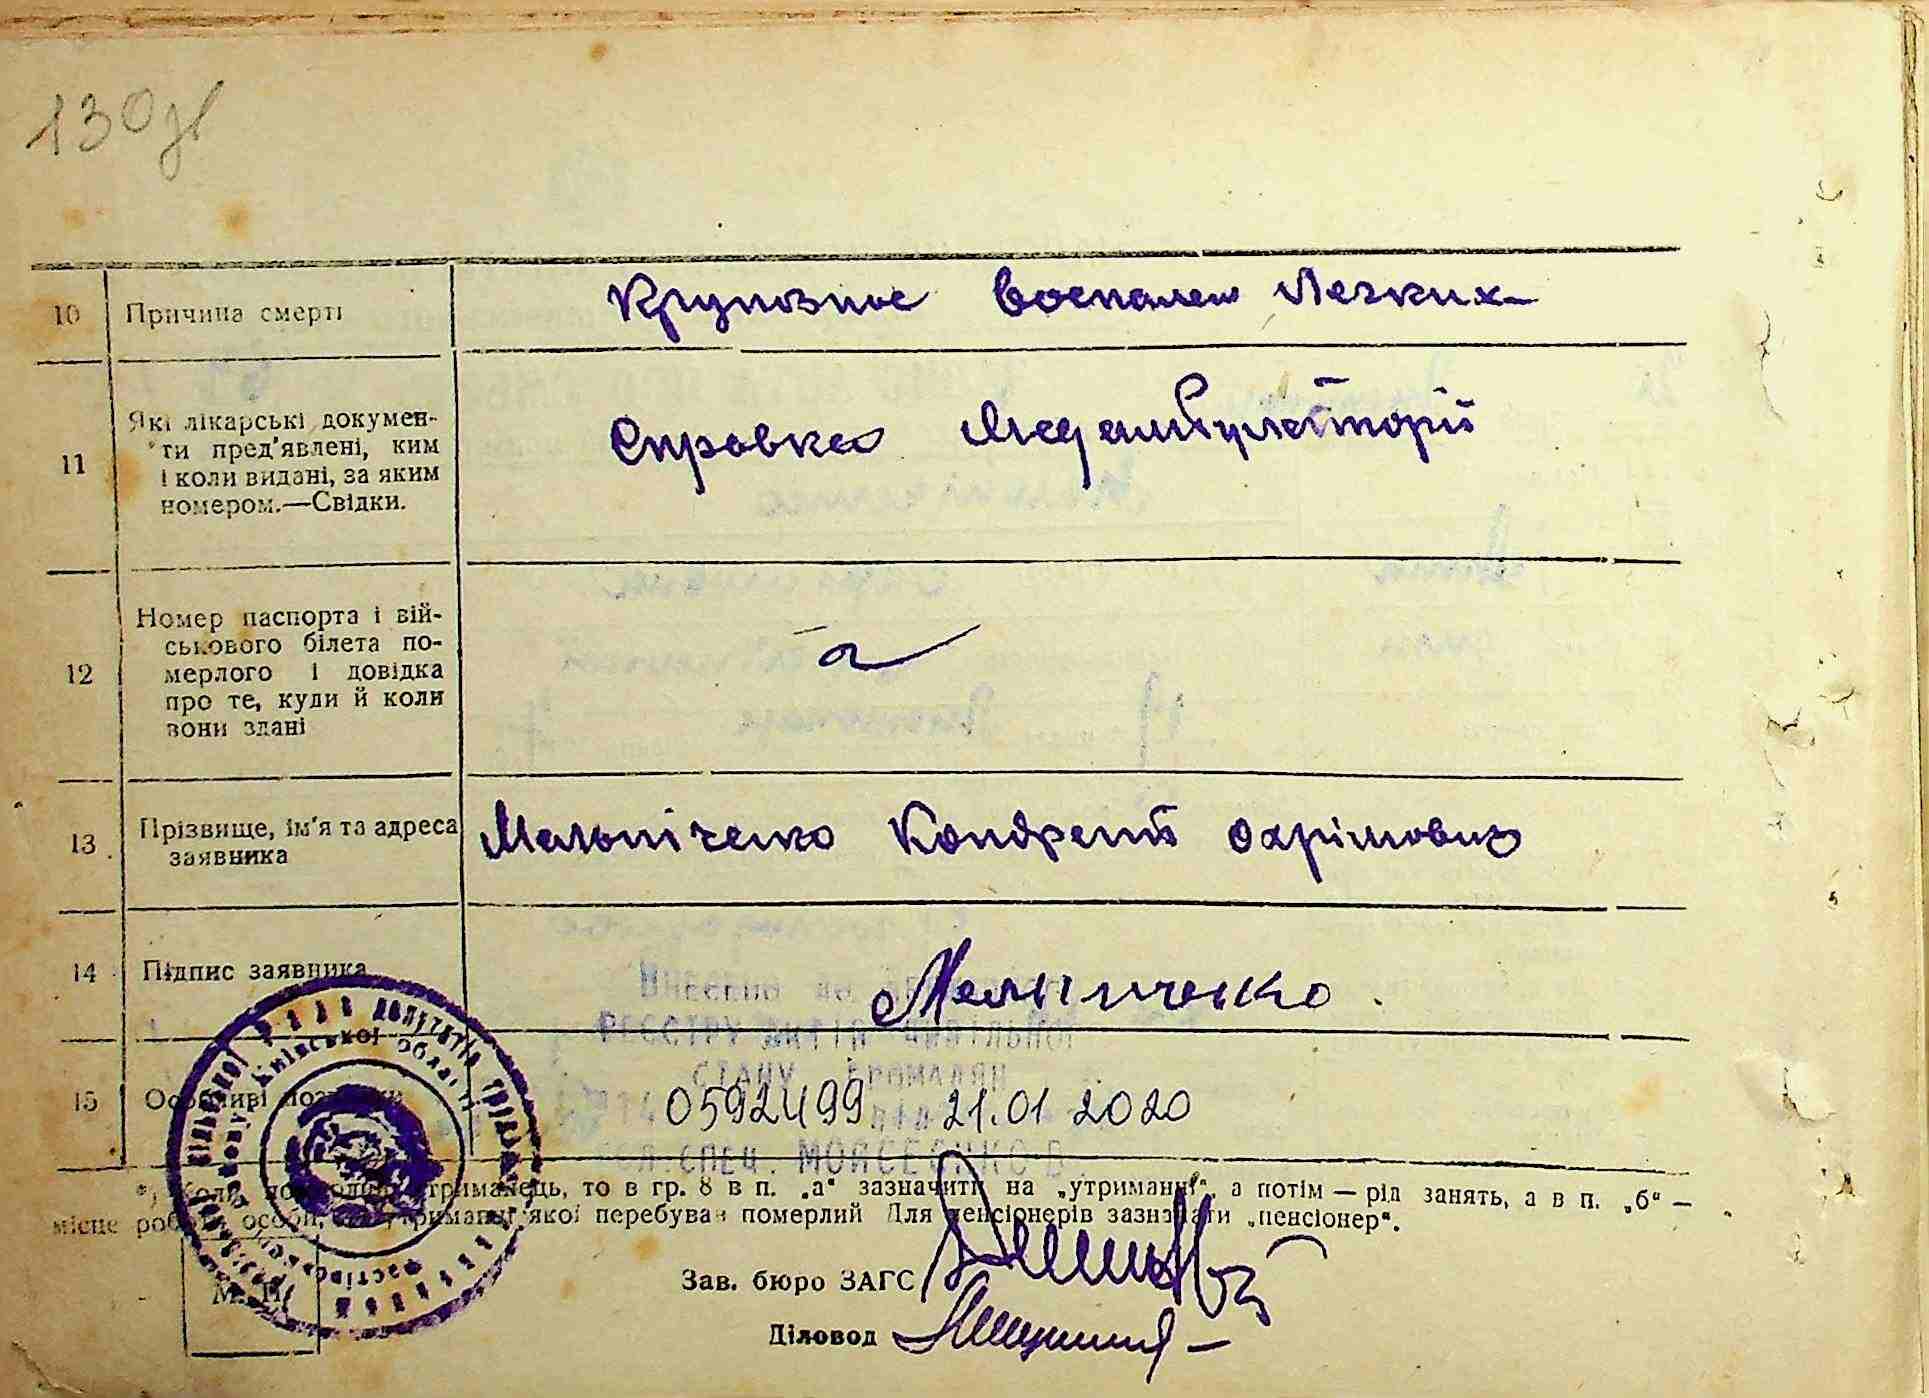 130зв
10 Причина смерті Крупозное воспален Легких
11 Які лікарські докумен-
ти пред'явлені, ким
і коли видані, за яким
номером.—Свідки.
Справка Медамбулаторії
12 Номер паспорта і вій-
ськового білета по-
мерлого і довідка
про те, куди й коли
вони здані
13 Прізвище, ім'я та адреса
заявника
Мельніченко Кондрат Охрімович
14 Підпис заявника Мельниченко
Внесено до
РЕЄСТРУ АКТІВ ЦИВІЛЬНОГО
СТАНУ ГРОМАДЯН
15 Особливі позначки 0592499 від 21.01 2020
СПЕЦ. МОЙСЕЄНКО
*) Коли померлий утриманець, то в гр. 8 в п. „а“ зазначити на „утриманні“, а потім — рід занять, а в п. „б“ —
місце роботи особи, на утриманні якої перебував померлий Для пенсіонерів зазначати „пенсіонер“.
М. П.
Зав. бюро ЗАГС
Діловод